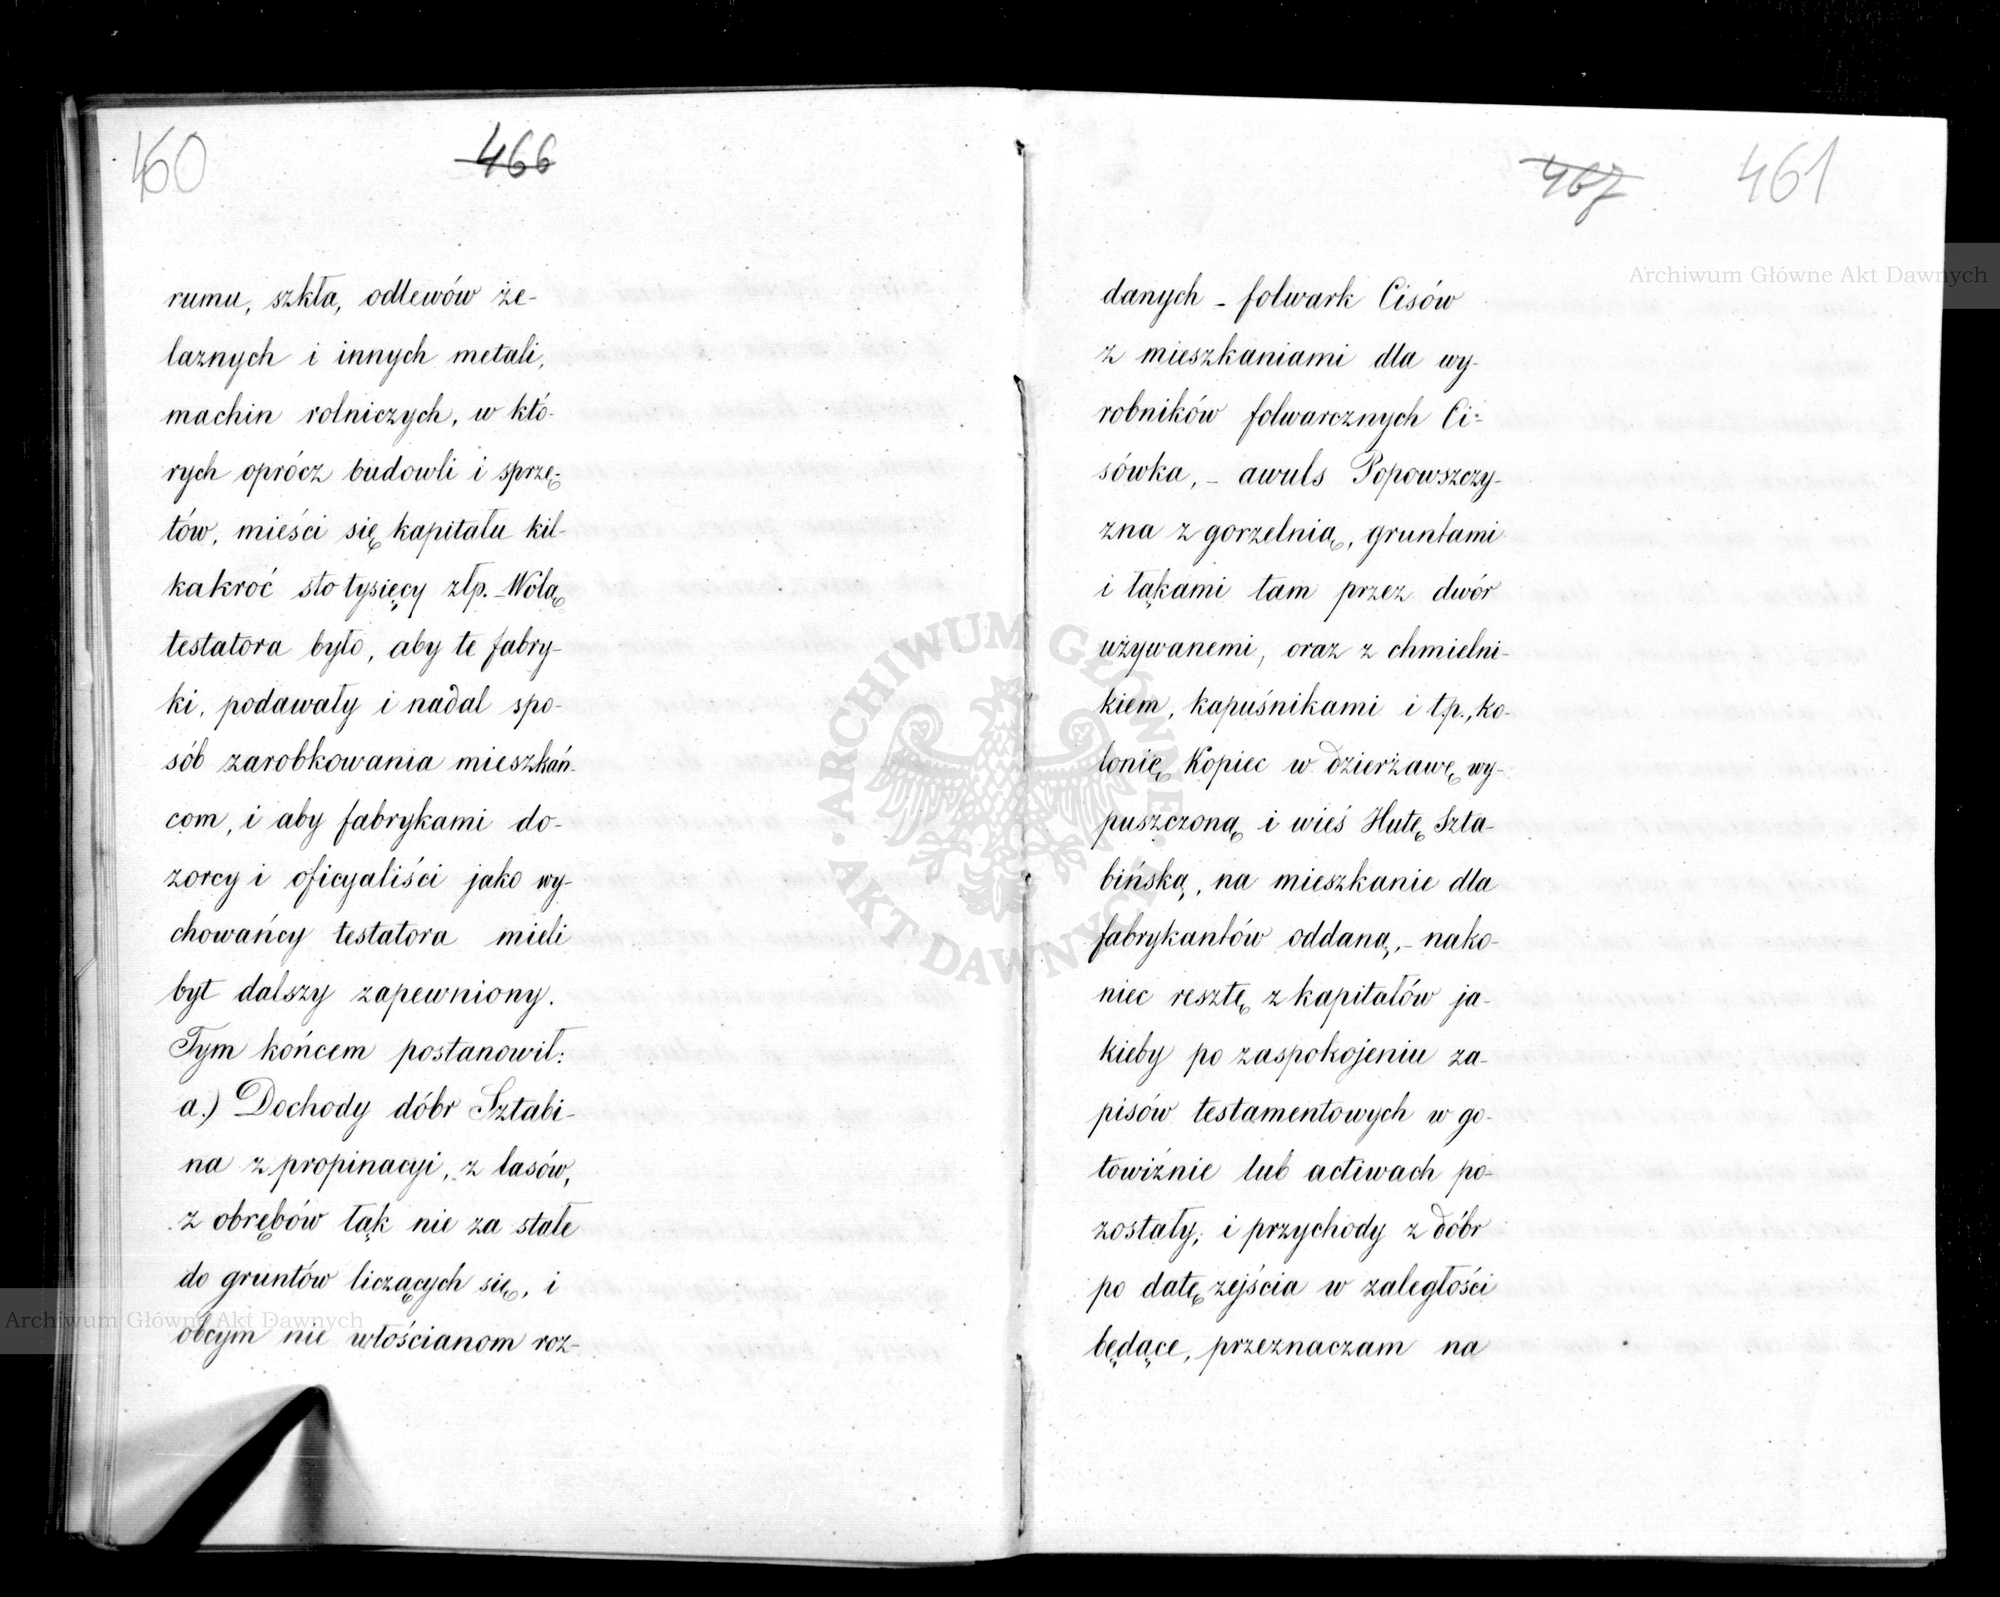 460
466
rumu, szkła, odlewów że-
laznych i innych metali,
machin rolniczych, w któ-
rych oprócz budowli i sprzę-
tów, mieści się kapitału kil-
kakroć sto tysięcy złp. – Wolą
testatora było, aby te fabry-
ki, podawały i nadal spo-
sób zarobkowania mieszkań-
com, i aby fabrykami do-
zorcy i oficyaliści jako wy-
chowańcy testatora mieli
byt dalszy zapewniony.
Tym końcem postanowił:
a.) Dochody dóbr Sztabi-
na z propinacyi, z lasów,
z obrębów łąk nie za stałe
do gruntów liczących się, i
obcym nie włościanom roz-
467
461
danych – folwark Cisów
z mieszkaniami dla wy-
robników folwarcznych Ci-
sówka, – awuls Popowszczy-
zna z gorzelnią, gruntami
i łąkami tam przez dwór
używanemi, oraz z chmielni-
kiem, kapuśnikami i t.p., ko-
lonię Kopiec w dzierżawę wy-
puszczoną i wieś Hutę Szta-
bińską, na mieszkanie dla
fabrykantów oddaną, – nako-
niec resztę z kapitałów ja-
kieby po zaspokojeniu za-
pisów testamentowych w go-
towiźnie lub activach po-
zostały, i przychody z dóbr
po datę zejścia w zaległości
będące, przeznaczam na
Archiwum Główne Akt Dawnych
Archiwum Główne Akt Dawnych
ARCHIWUM GŁÓWNE AKT DAWNYCH